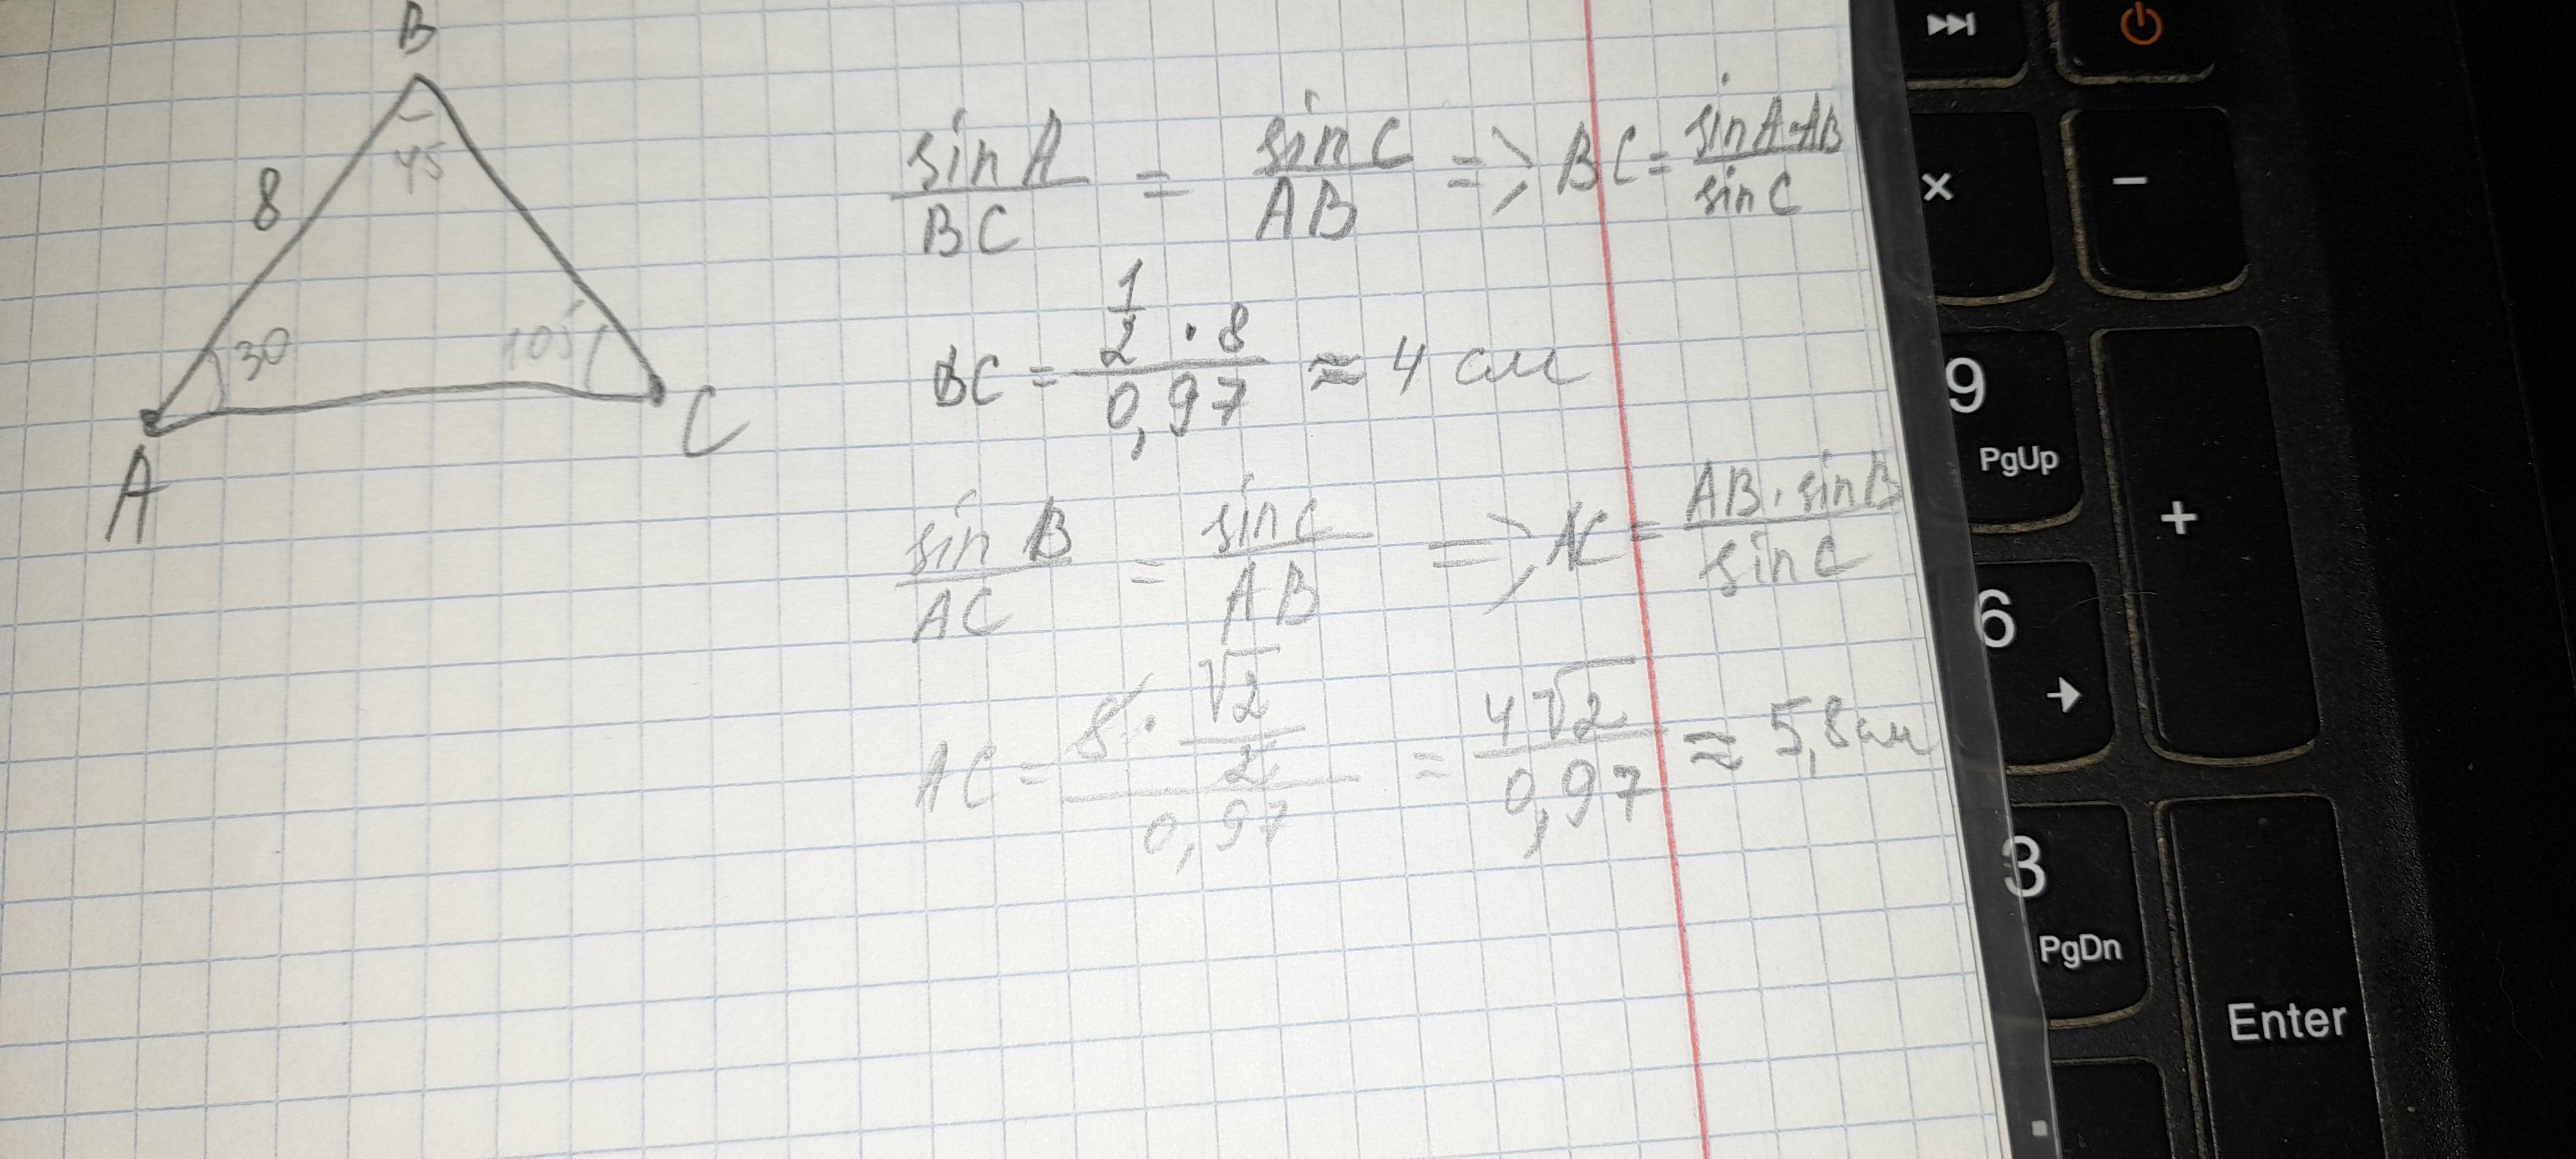 B
45
8
30
105
A
C
sin A / BC = sin C / AB => BC = sin A · AB / sin C
BC = 1/2 · 8 / 0,97 ≈ 4 см
sin B / AC = sin C / AB => AC = AB · sin B / sin C
AC = 8 · √2/2 / 0,97 = 4√2 / 0,97 ≈ 5,8 см
×
−
9
PgUp
+
6
3
PgDn
Enter
.